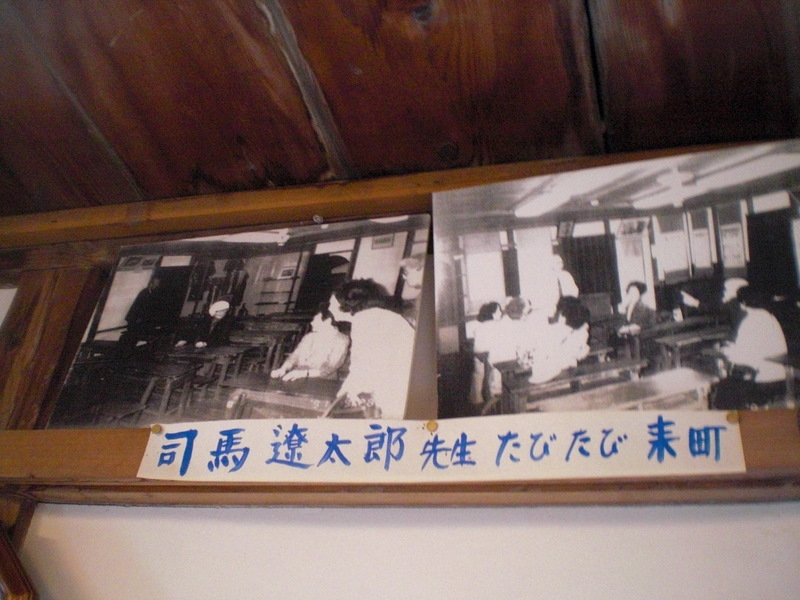 司馬遼太郎先生たびたび来町